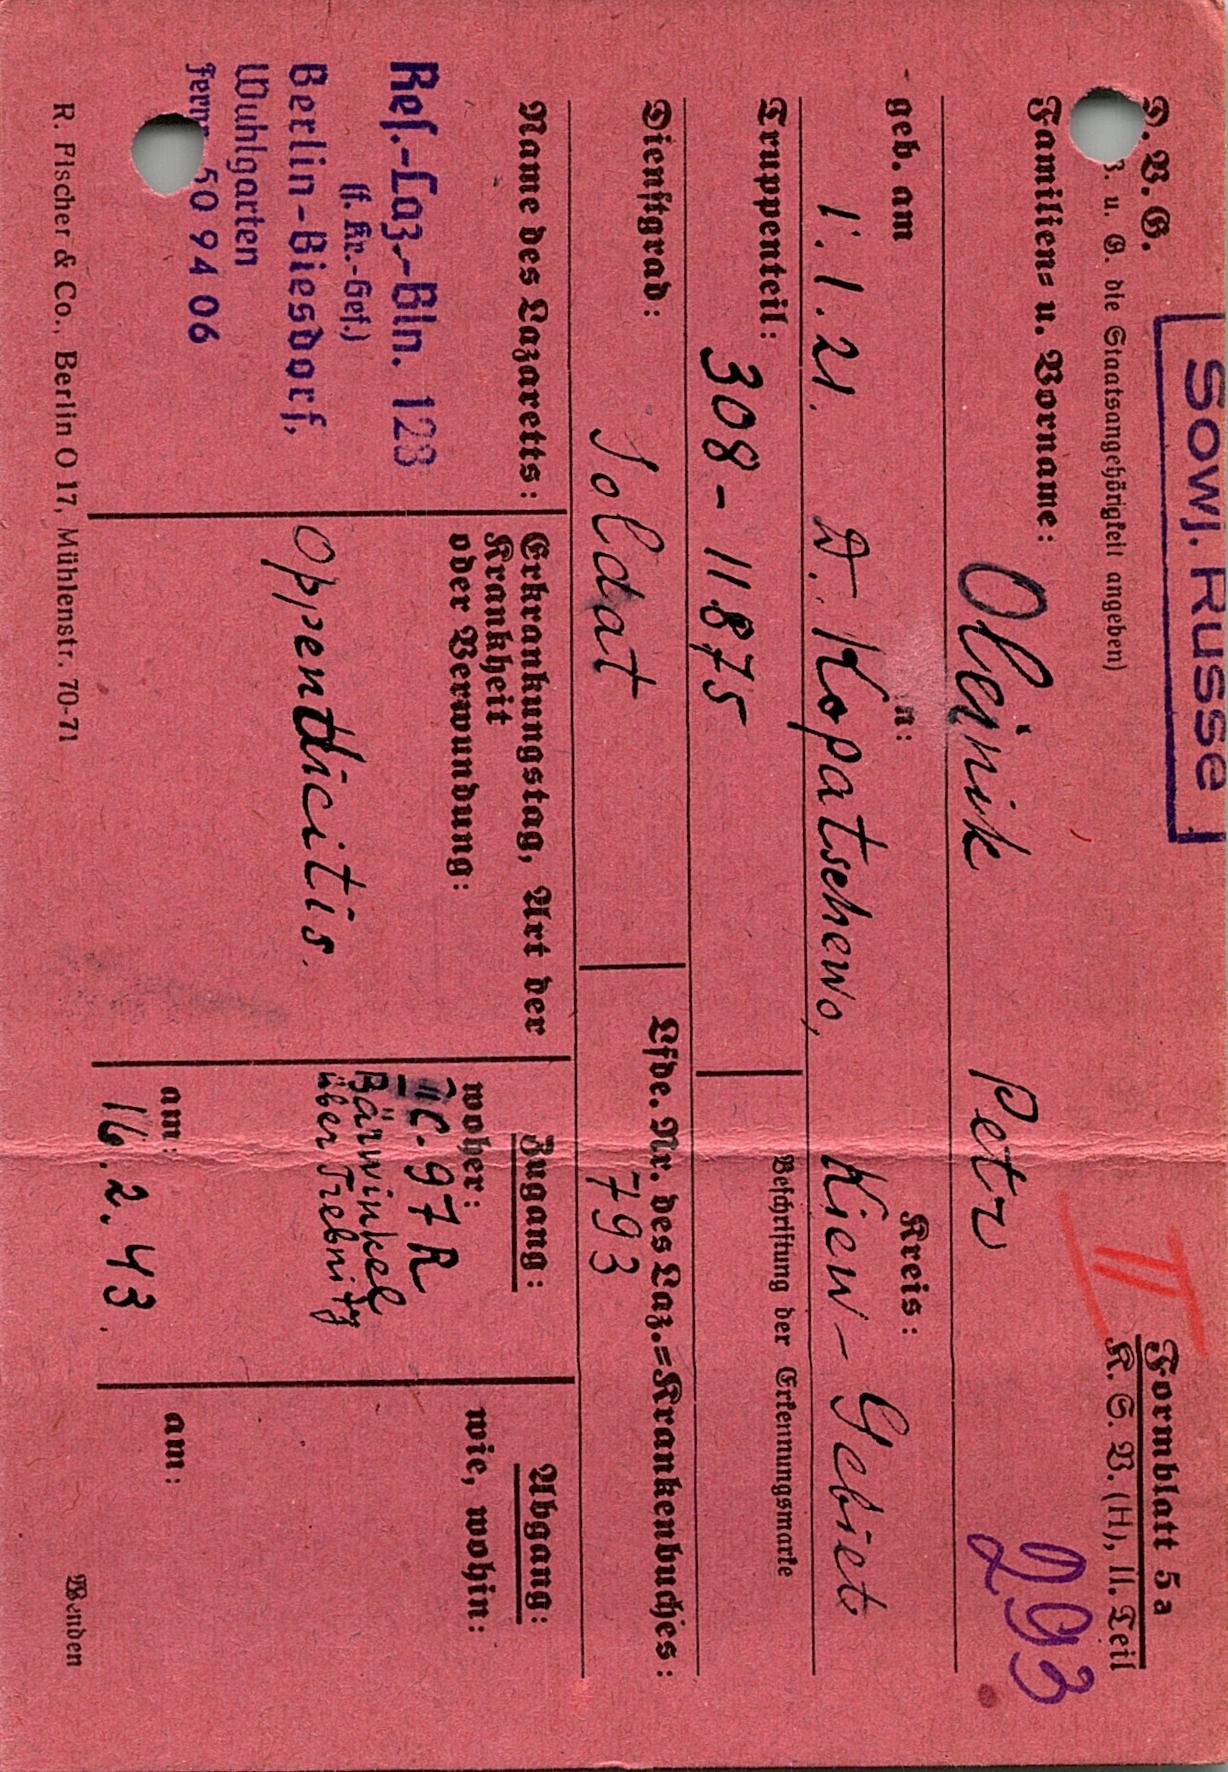 Sowj. Russe
D. V. G.
Formblatt 5a
B. u. G. die Staatsangehörigkeit angeben)
II
K. S. V. (H), II. Teil
Familien= u. Vorname:
293
Oleinik Petr
geb. am
n:
Kreis:
1.1.21. D. Kopatschewo, Kiew - Gebiet
Truppenteil:
Beschriftung der Erkennungsmarke
308 - 11875
Dienstgrad:
Lfde. Nr. des Laz.=Krankenbuches:
Soldat
793
Name des Lazaretts:
Ref.-Laz.-Bln. 128
(f. Kr.-Gef.)
Berlin-Biesdorf,
Wuhlgarten
Fernr. 50 94 06
Erkrankungstag, Art der
Krankheit
oder Verwundung:
Oppendicitis.
Zugang:
woher:
C-97 R
Bärwinkel
über Trebnitz
am:
16. 2. 43.
Abgang:
wie, wohin:
am:
R. Fischer & Co., Berlin O 17, Mühlenstr. 70-71
Wenden